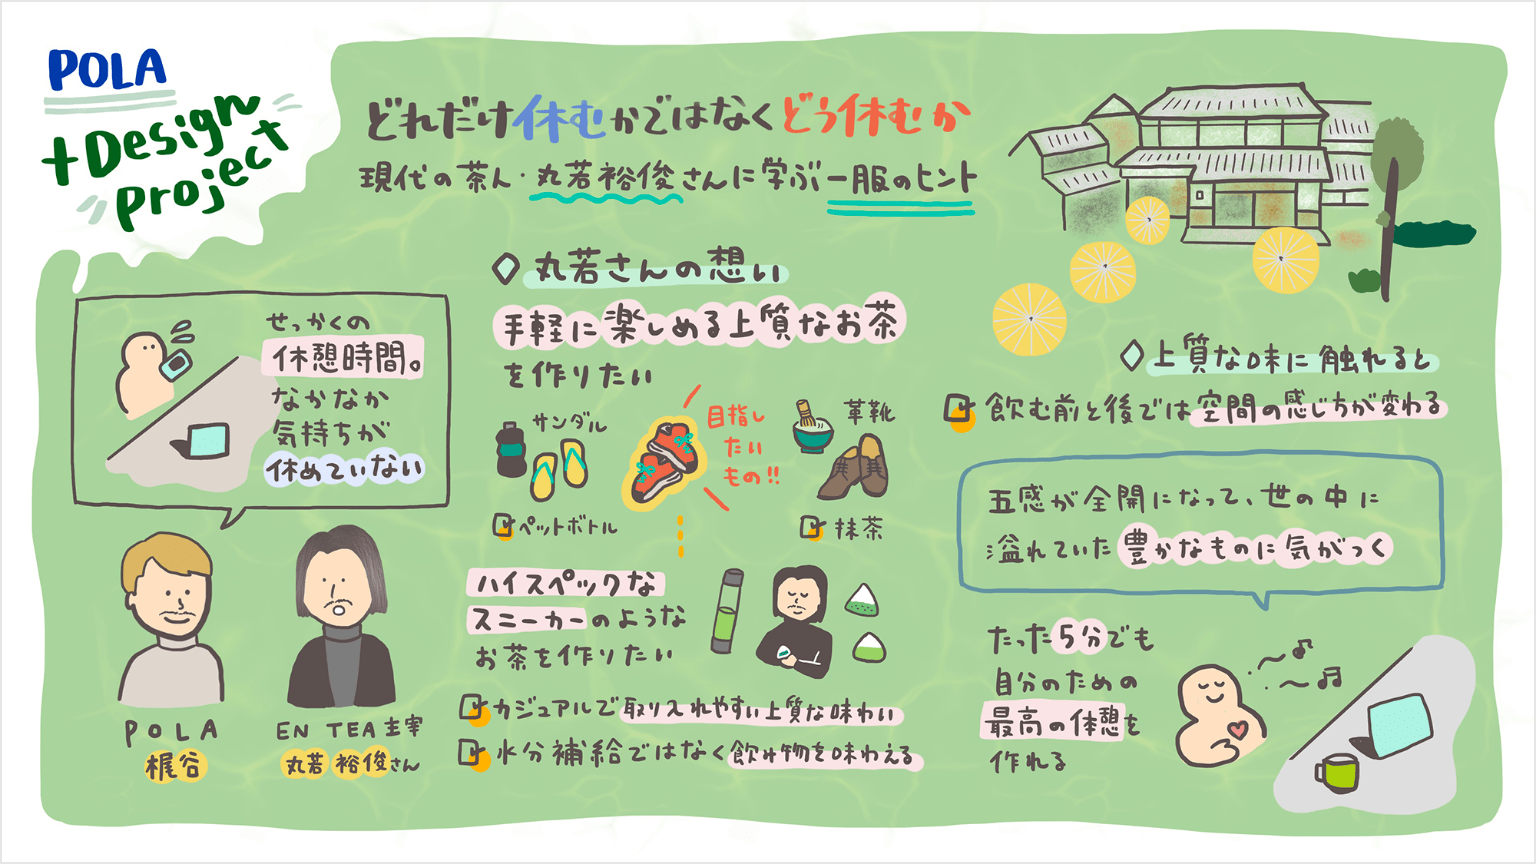 POLA
+Design
project
どれだけ休むかではなくどう休むか
現代の茶人・丸若裕俊さんに学ぶ一服のヒント
せっかくの
休憩時間。
なかなか
気持ちが
休めていない
POLA
梶谷
EN TEA主宰
丸若裕俊さん
丸若さんの想い
手軽に楽しめる上質なお茶
を作りたい
サンダル
ペットボトル
目指し
たい
もの!!
革靴
抹茶
ハイスペックな
スニーカーのような
お茶を作りたい
カジュアルで取り入れやすい上質な味わい
水分補給ではなく飲み物を味わえる
上質な味に触れると
飲む前と後では空間の感じちが変わる
五感が全開になって、世の中に
溢れていた豊かなものに気がつく
たった5分でも
自分のための
最高の休憩を
作れる